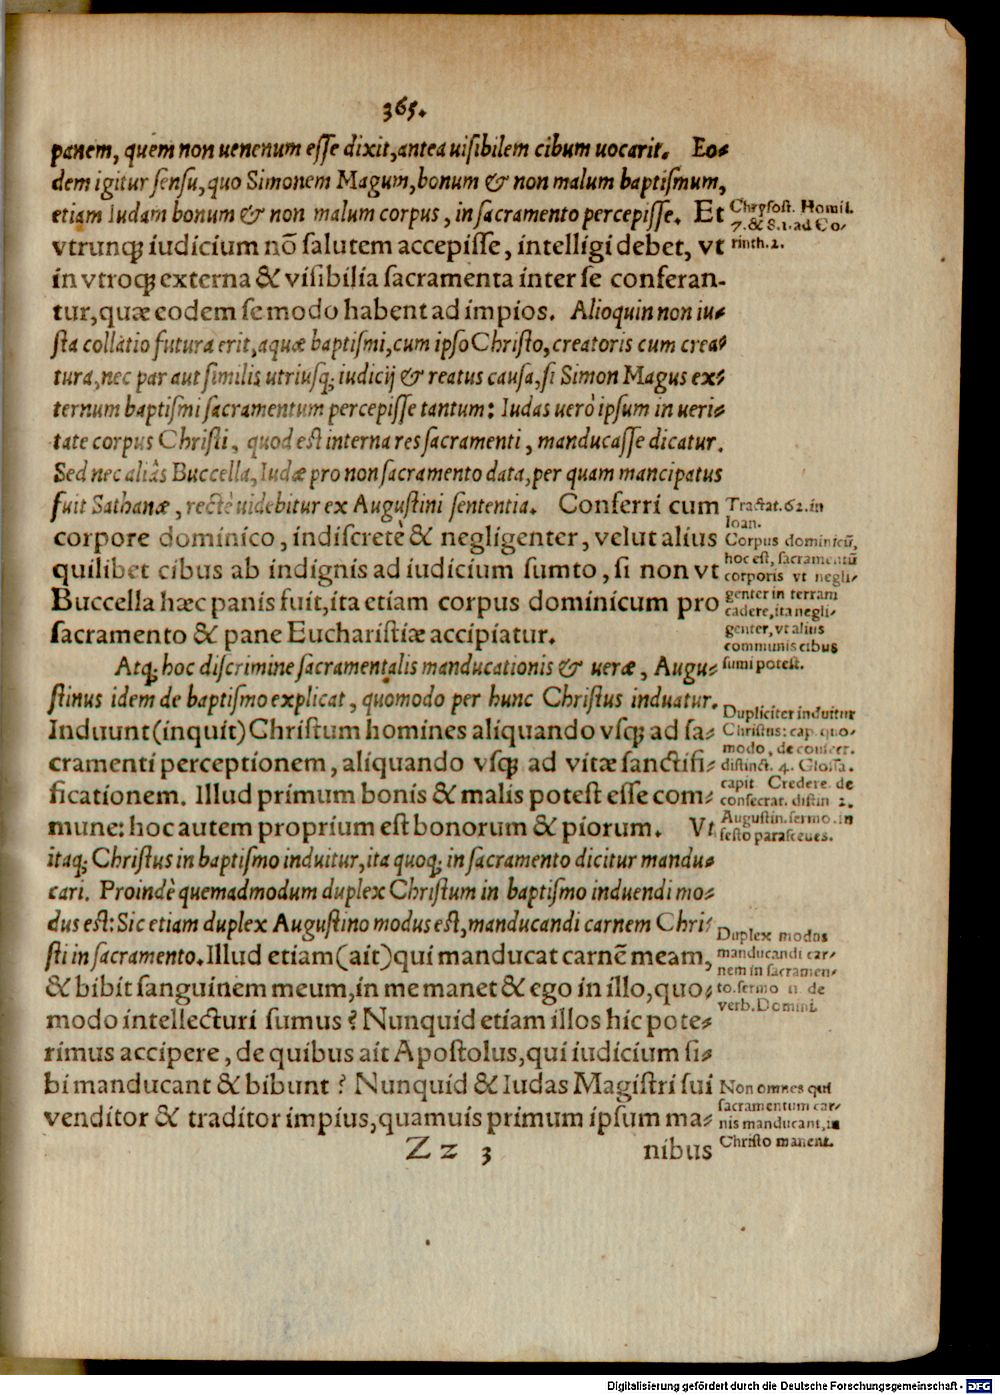 365.
panem, quem non uenenum esse dixit, antea uisibilem cibum uocarit. Eo-
dem igitur sensu, quo Simonem Magum, bonum & non malum baptismum,
etiam Iudam bonum & non malum corpus, in sacramento percepisse. Et
vtrunq; iudicium nō salutem accepisse, intelligi debet, vt
in vtroq; externa & visibilia sacramenta inter se conferan-
tur, quæ eodem se modo habent ad impios. Alioquin non iu-
sta collatio futura erit, aquæ baptismi, cum ipso Christo, creatoris cum crea-
tura, nec par aut similis utriusq; iudicij & reatus causa, si Simon Magus ex-
ternum baptismi sacramentum percepisse tantum: Iudas uerò ipsum in ueri-
tate corpus Christi, quod est interna res sacramenti, manducasse dicatur.
Sed nec aliàs Buccella, Iudæ pro non sacramento data, per quam mancipatus
fuit Sathanæ, rectè uidebitur ex Augustini sententia. Conferri cum
corpore dominico, indiscretè & negligenter, velut alius
quilibet cibus ab indignis ad iudicium sumto, si non vt
Buccella hæc panis fuit, ita etiam corpus dominicum pro
sacramento & pane Eucharistiæ accipiatur.
Atq; hoc discrimine sacramentalis manducationis & ueræ, Augu-
stinus idem de baptismo explicat, quomodo per hunc Christus induatur.
Induunt (inquit) Christum homines aliquando vsq; ad sa-
cramenti perceptionem, aliquando vsq; ad vitæ sanctifi-
ficationem. Illud primum bonis & malis potest esse com-
mune: hoc autem proprium est bonorum & piorum. Vt
itaq; Christus in baptismo induitur, ita quoq; in sacramento dicitur mandu-
cari. Proindè quemadmodum duplex Christum in baptismo induendi mo-
dus est: Sic etiam duplex Augustino modus est, manducandi carnem Chri-
sti in sacramento. Illud etiam (ait) qui manducat carnē meam,
& bibit sanguinem meum, in me manet & ego in illo, quo-
modo intellecturi sumus? Nunquid etiam illos hic pote-
rimus accipere, de quibus ait Apostolus, qui iudicium si-
bi manducant & bibunt? Nunquid & Iudas Magistri sui
venditor & traditor impius, quamuis primum ipsum ma-
Z z 3 nibus
Chrysost. Homil.
7. & 8. 1. ad Co-
rinth. 2.
Tractat. 62. in
Ioan.
Corpus dominicū,
hoc est, sacramentū
corporis vt negli-
genter in terram
cadere, ita negli-
genter, vt alius
communis cibus
sumi potest.
Dupliciter induitur
Christus: cap. quo-
modo, de consecr.
distinct. 4. Glossa.
capit Credere. de
consecrat. distin 2.
Augustin. sermo. in
festo parasceues.
Duplex modus
manducandi car-
nem in sacramen-
to. sermo 11. de
verb. Domini.
Non omnes qui
sacramentum car-
nis manducant, in
Christo manent.
Digitalisierung gefördert durch die Deutsche Forschungsgemeinschaft - DFG